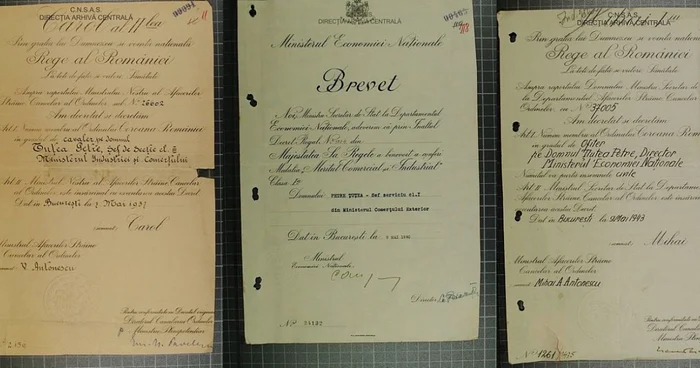 C.N.S.A.S.
DIRECȚIA ARHIVĂ CENTRALĂ
Carol al II lea
Prin grația lui Dumnezeu și voința națională
Rege al României
La toți de față și viitori Sănătate
Asupra raportului Ministrului Nostru al Afacerilor
Străine Cancelar al Ordinelor sub Nº 26002
Am decretat și decretăm
Art. I. Numim membru al Ordinului Coroana României
în gradul de cavaler pe Domnul
Țuțea Petre, Șef de Secție cl. II
Ministerul Industriei și Comerțului
Art. II Ministrul Nostru al Afacerilor Străine Cancelar
al Ordinelor este însărcinat cu
Dat în București la 1 Mai 1937
Carol
Ministrul Afacerilor Străine
Cancelar al Ordinelor
V. Antonescu
Pentru conformitate cu Decretul original
Directorul Cancelariei Ordinelor
Ministru Plenipotențiar
DIRECȚIA ARHIVĂ CENTRALĂ
Ministerul Economiei Naționale
Brevet
Noi, Ministru Secretar de Stat la Departamentul
Economiei Naționale, adeverim că prin Înaltul
Decret Regal din
Majestatea Sa Regele a binevoit a conferi
Medalia „Meritul Comercial și Industrial”
Clasa I
Domnului PETRE ȚUȚEA - Șef serviciu cl.I
din Ministerul Comerțului Exterior
Dat în București la 8 MAI 1940
Ministrul
Economiei Naționale
Director
Nº
C.N.S.A.S.
DIRECȚIA ARHIVĂ CENTRALĂ
Prin grația lui Dumnezeu și voința națională
Rege al României
La toți de față și viitori Sănătate
Asupra raportului Ministrului Secretar de
la Departamentul Afacerilor Străine Cancelar
Ordinelor cu Nº 37005
Am decretat și decretăm
Art. I. Numim membru al Ordinului Coroana Ro
în gradul de Ofițer
pe Domnul Țuțea Petre, Director
Ministerul Economiei Naționale
Numitul va purta însemnele
Art. II Ministrul Secretar de Stat la Departamentul
Afacerilor Străine Cancelar al Ordinelor este însărcinat cu
executarea acestui Decret
Dat în București la 9 Mai 1943
Mihai
Ministrul Afacerilor Străine
Cancelar al Ordinelor
Mihai A. Antonescu
Pentru conformitate cu
Directorul Cancelariei
Ministru